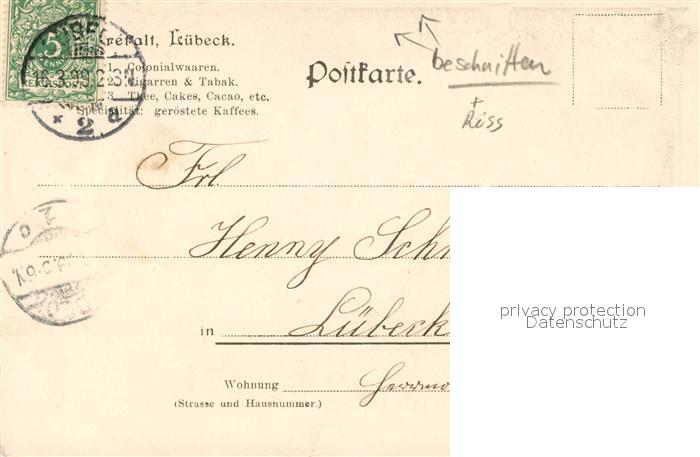 Lübeck.
1. Colonialwaaren.
2. Zigarren & Tabak.
3. Thee, Cakes, Cacao, etc.
Specialität: geröstete Kaffees.
5
2
Postkarte.
beschnitten
+
Riss
Frl
Henny Sch
in Lübeck
Wohnung
(Strasse und Hausnummer.)
privacy protection
Datenschutz